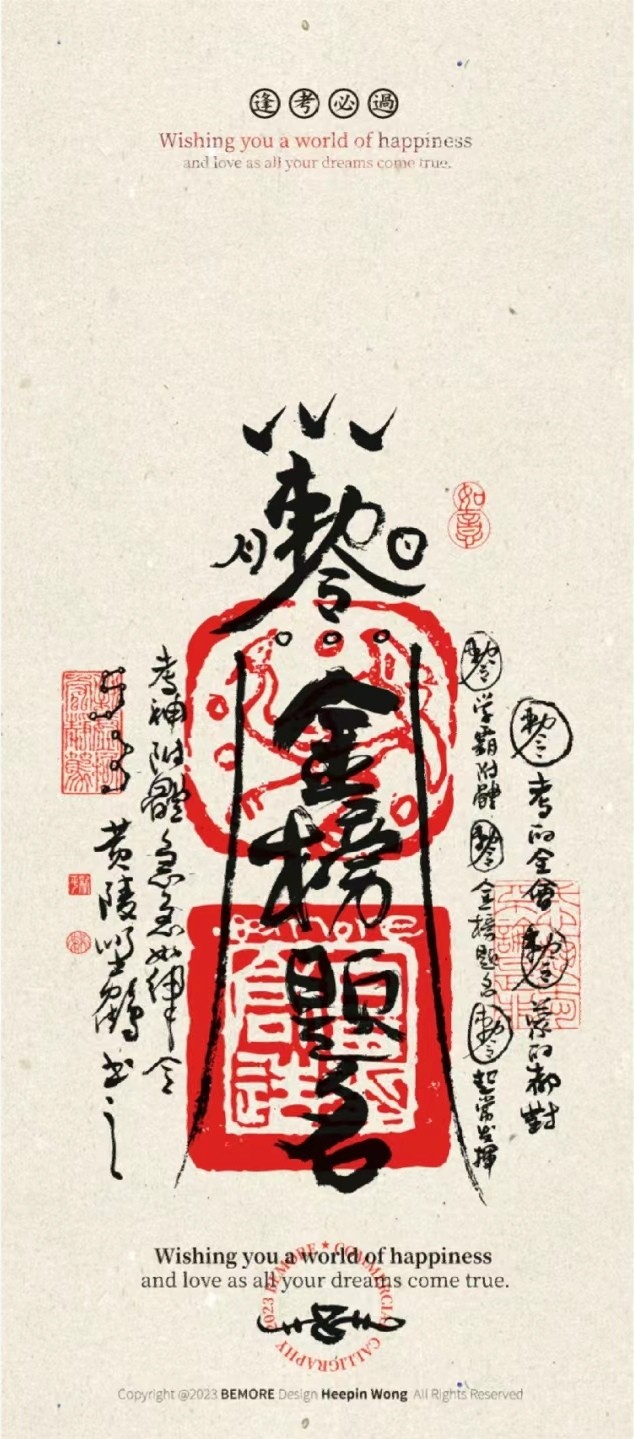 逢考必過
Wishing you a world of happiness
and love as all your dreams come true.
勅令
月
日
如意
金榜題名
勅令 考的全會 勅令 蒙的都對
勅令 学霸附體 勅令 金榜題名 勅令 超常发揮
考神附體急急如律令
黄陵
鶴書
Wishing you a world of happiness
and love as all your dreams come true.
2023 BEMORE ★ COMMERCIAL CALLIGRAPHY
Copyright @2023 BEMORE Design Heepin Wong All Rights Reserved